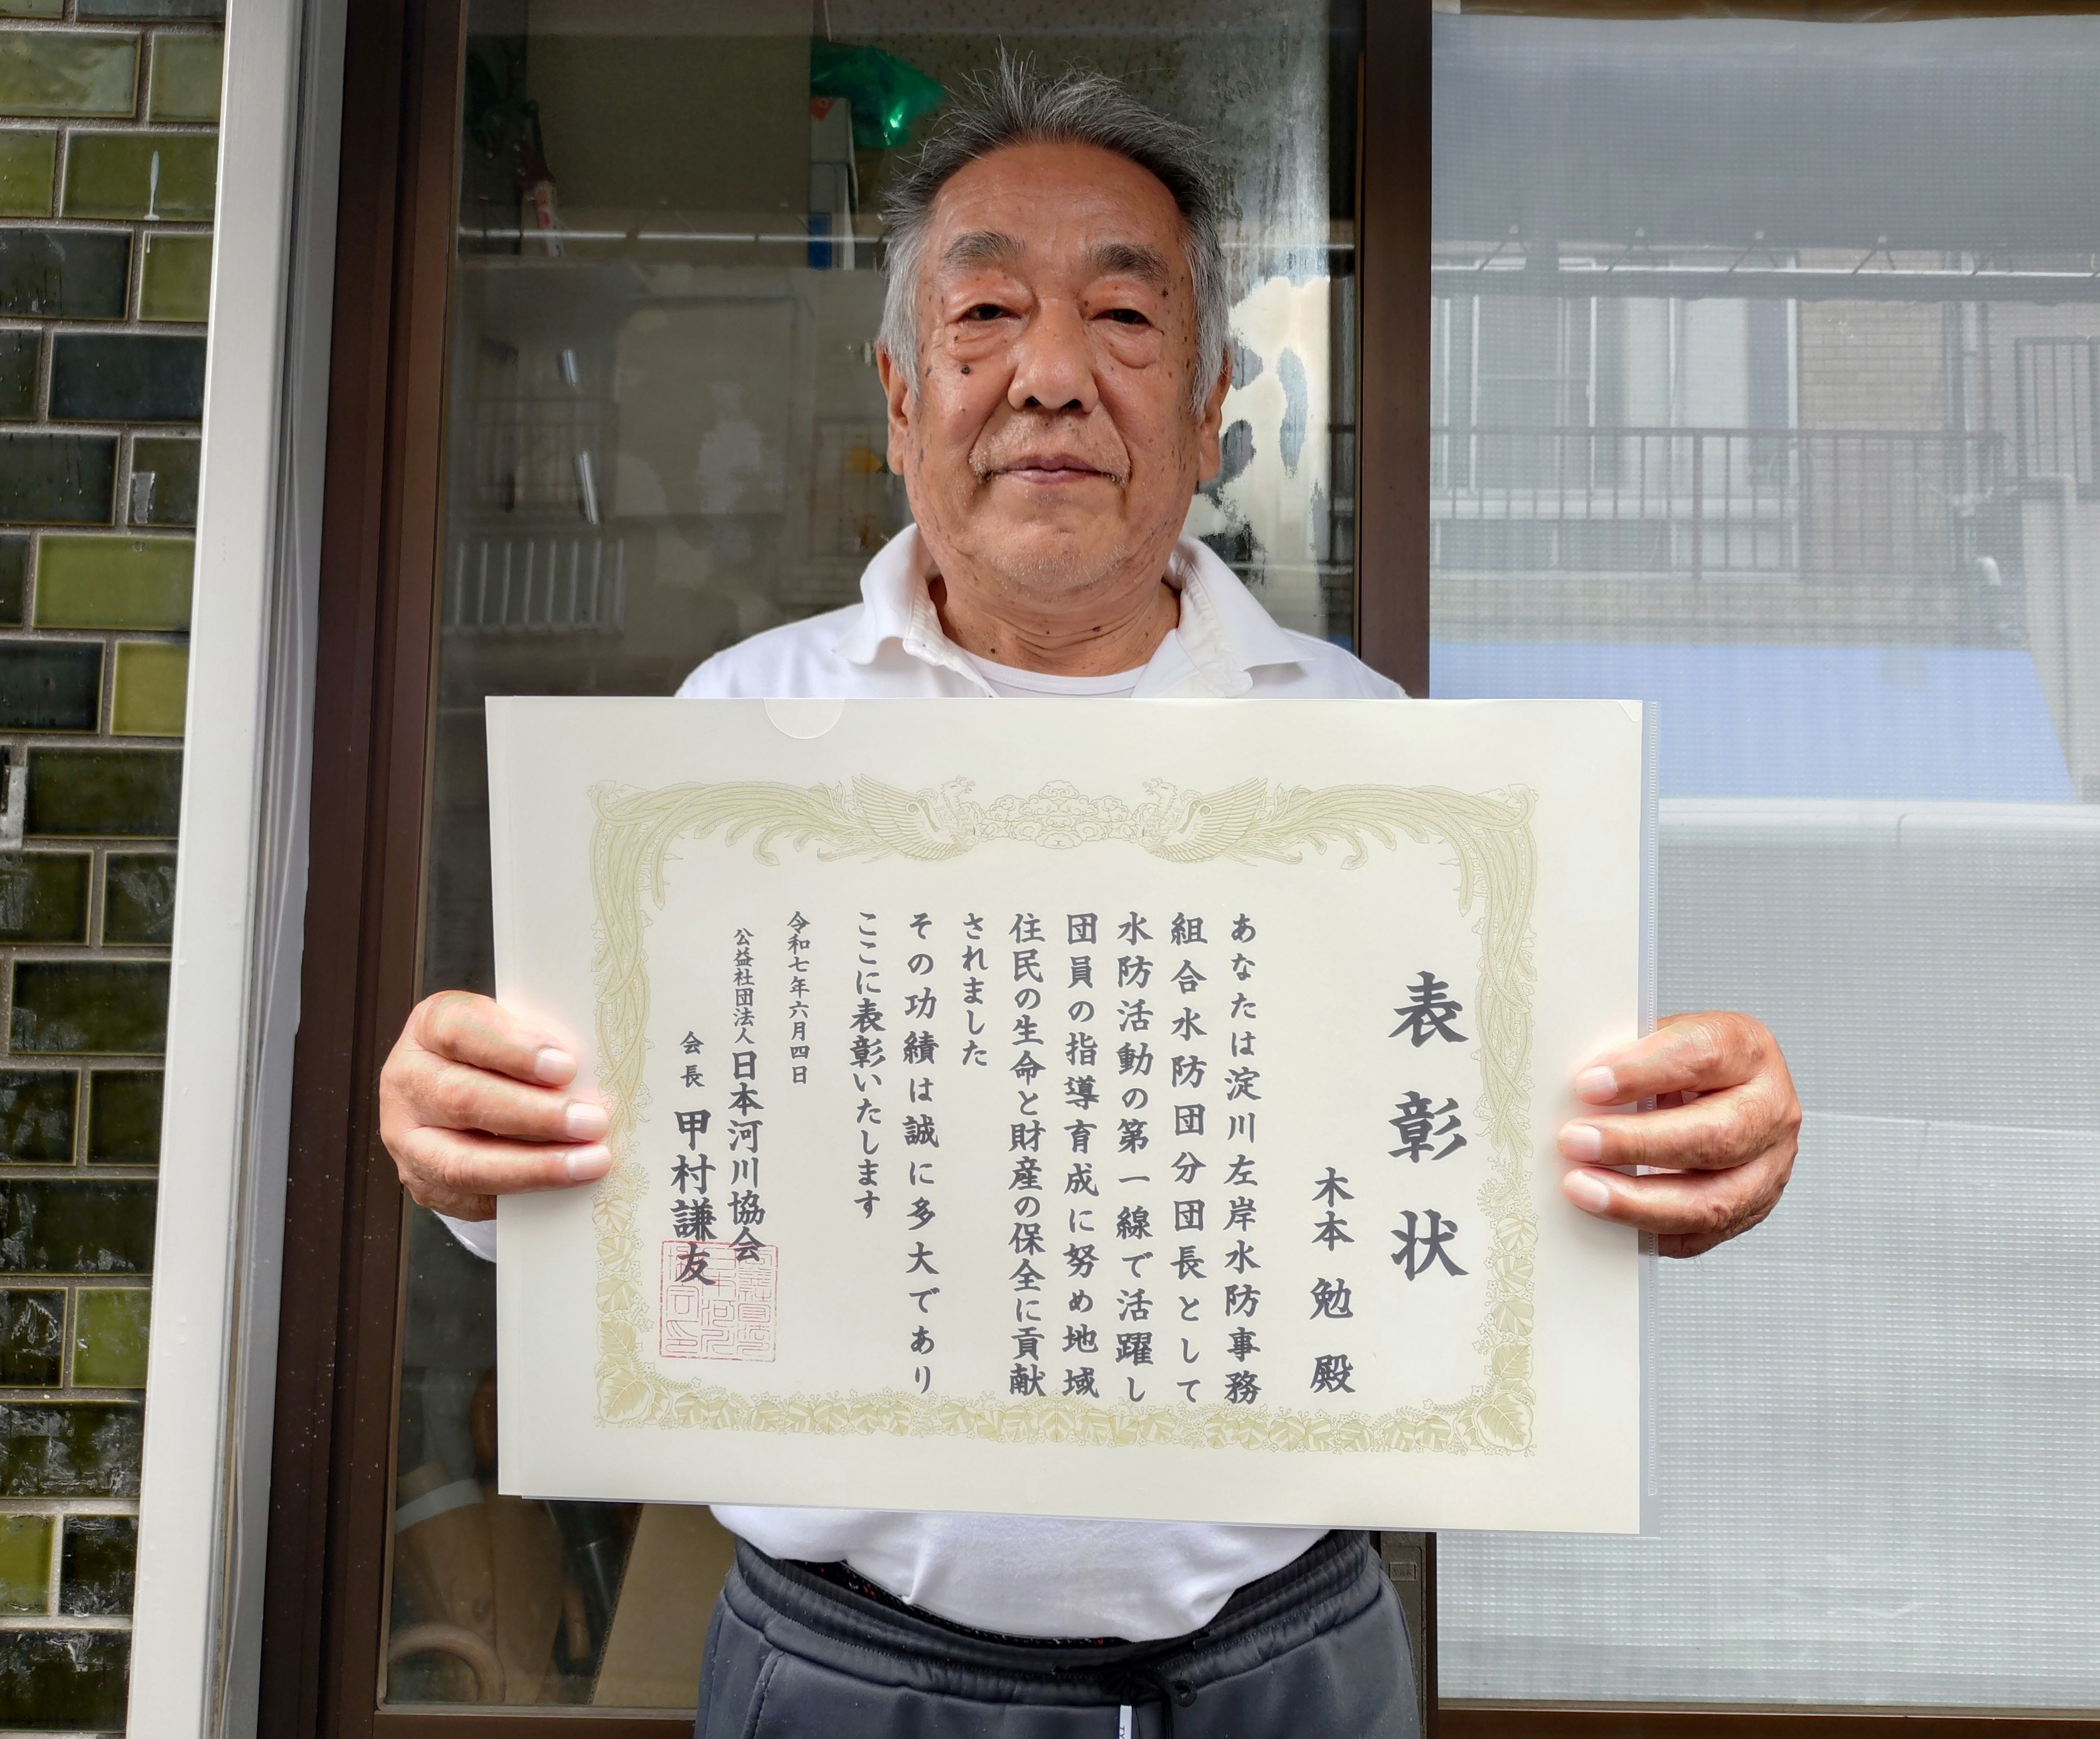 表彰状
木本 勉 殿
あなたは淀川左岸水防事務
組合水防団分団長として
水防活動の第一線で活躍し
団員の指導育成に努め地域
住民の生命と財産の保全に貢献
されました
その功績は誠に多大であり
ここに表彰いたします
令和七年六月四日
公益社団法人 日本河川協会
会長 甲村謙友